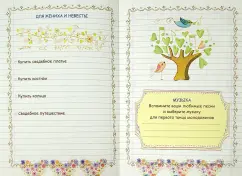 ДЛЯ ЖЕНИХА И НЕВЕСТЫ:
- Купить свадебное платье
- Купить костюм
- Купить кольца
- Свадебное путешествие
МУЗЫКА
Вспомните ваши любимые песни
и выберите музыку
для первого танца молодоженов